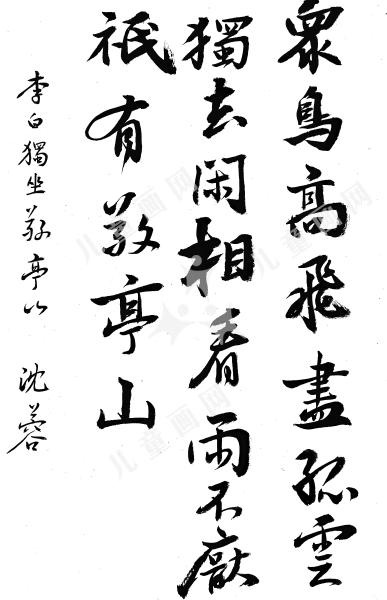 眾鳥高飛盡孤雲
獨去閑相看兩不厭
祇有敬亭山
李白獨坐敬亭山 沈蓉
儿童画网